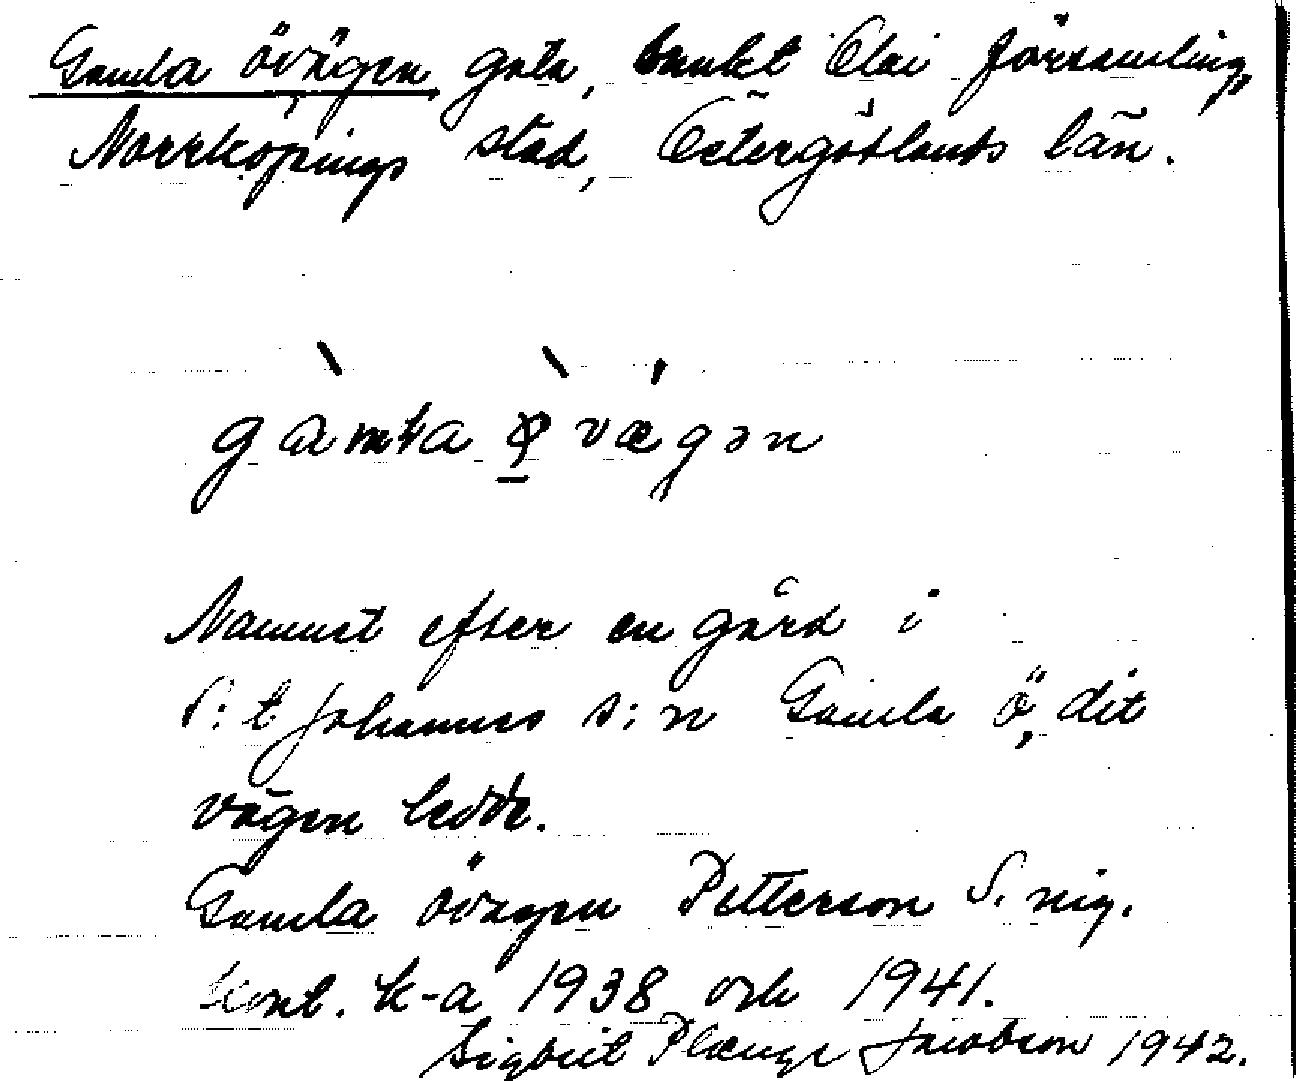 Gamla övägen gata, Sankt Olai församling,
Norrköpings stad, Östergötlands län.
gàmła ø̀ vǽgən
Namnet efter en gård i
S:t Johannes s:n Gamla ö, dit
vägen ledde.
Gamla övägen Petterson S. nig.
kont. k-a 1938 och 1941.
Sigbrit Plænge Jacobson 1942.